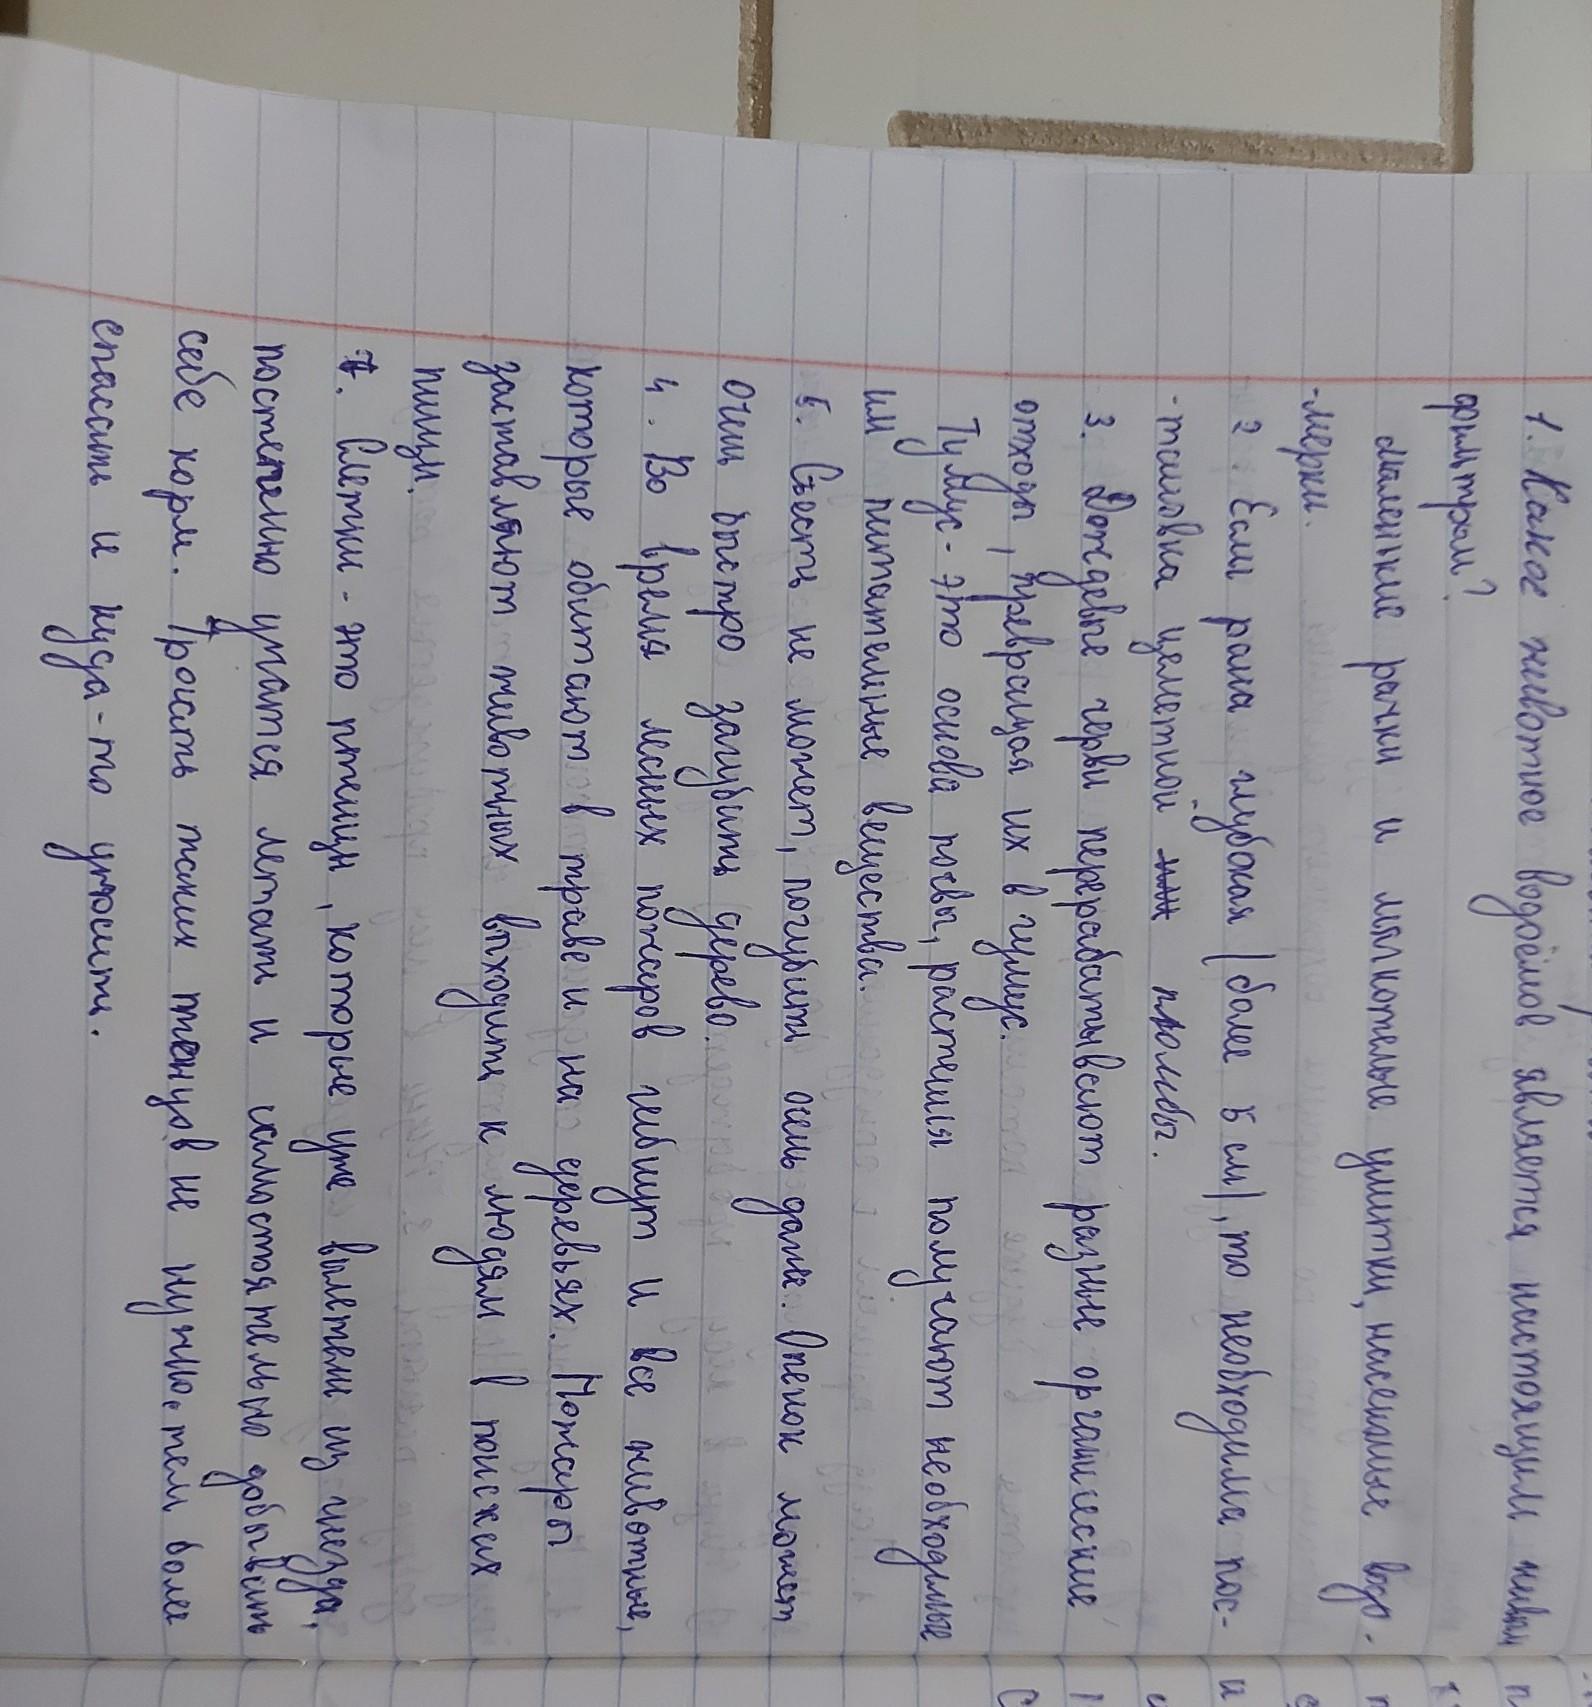 1. Какое животное водоёмов является настоящим живым
фильтром?
Маленькие рачки и мелкотелые улитки, насекомые водо-
-мерки.
2 Если рана глубокая (более 5 см), то необходима пос-
-тановка цементной пломбы.
3. Дождевые черви перерабатывают разные органические
отходы, превращая их в гумус.
Гумус - это основа почвы, растения получают необходимые
им питательные вещества.
5. Съесть не может, погубить очень даже. Опенок может
очень быстро загубить дерево.
4. Во время лесных пожаров гибнут и все животные,
которые обитают в траве и на деревьях. Пожары
заставляют животных выходить к людям в поисках
пищи.
7. Слетки - это птенцы, которые уже вылетели из гнезда,
постепенно учатся летать и самостоятельно добывать
себе корм. Трогать таких птенцов не нужно, тем более
спасать и куда-то уносить.